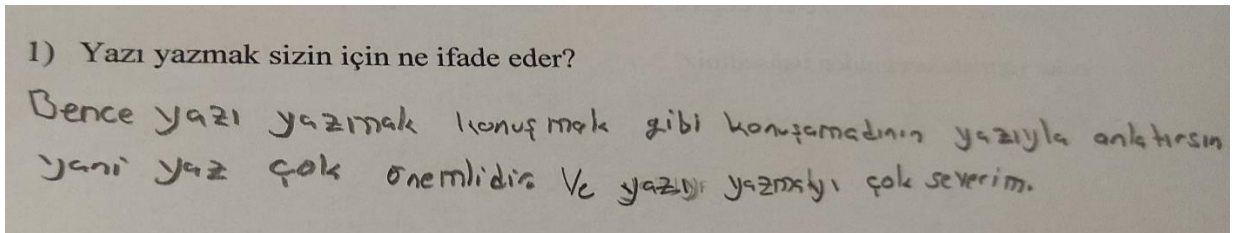 1) Yazı yazmak sizin için ne ifade eder?
Bence yazı yazmak konuşmak gibi konuşamadının yazıyla anlatırsın
yani yaz çok önemlidir. Ve yazıyı yazmayı çok severim.